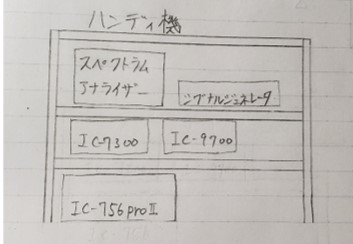 ハンディ機
スペクトラム
アナライザー
シグナルジェネレータ
IC-7300
IC-9700
IC-756proⅡ